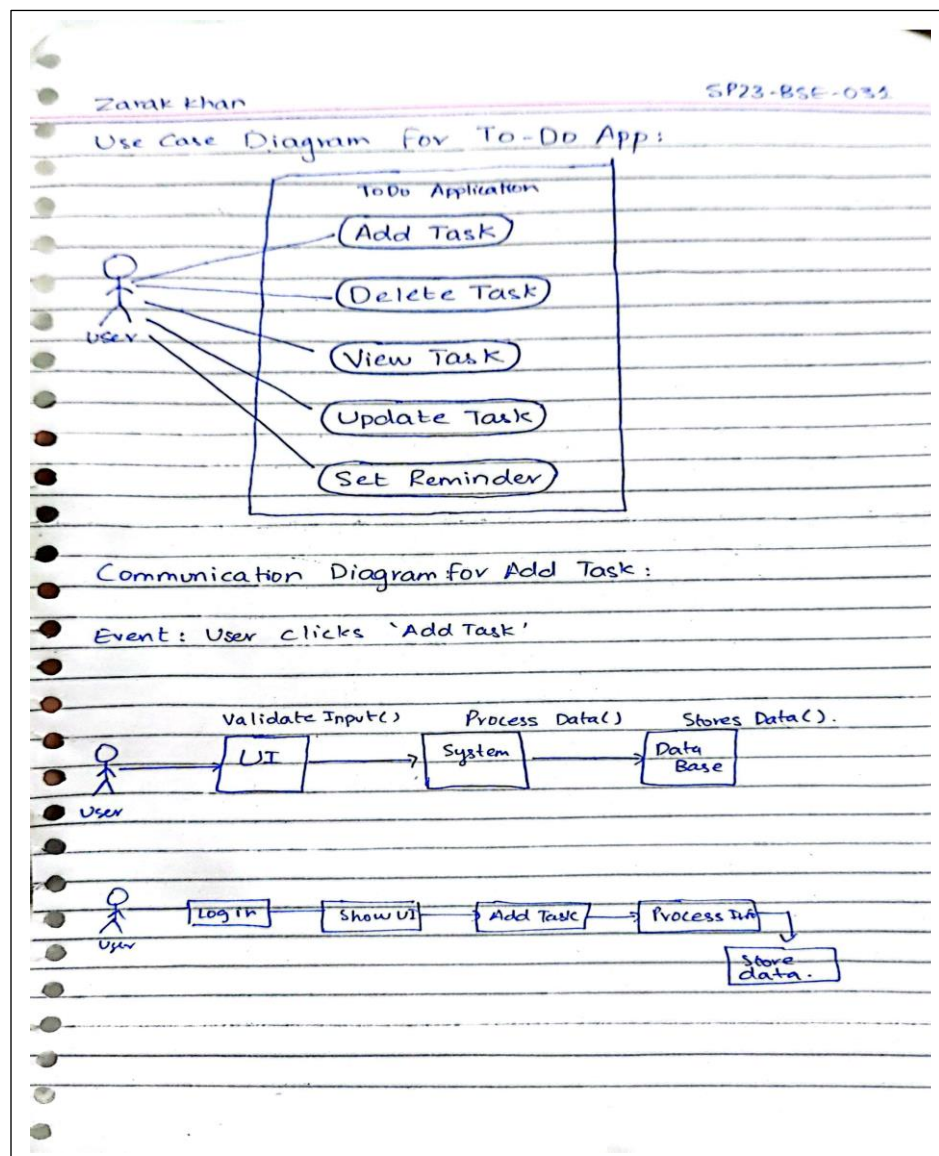 Zarak Khan SP23-BSE-031
Use Case Diagram For To-Do App:
ToDo Application
Add Task
Delete Task
User
View Task
Update Task
Set Reminder
Communication Diagram for Add Task:
Event: User clicks 'Add Task'
Validate Input() Process Data() Stores Data().
UI System Data
Base
User
Log in Show UI Add Task Process
User
Store
data.